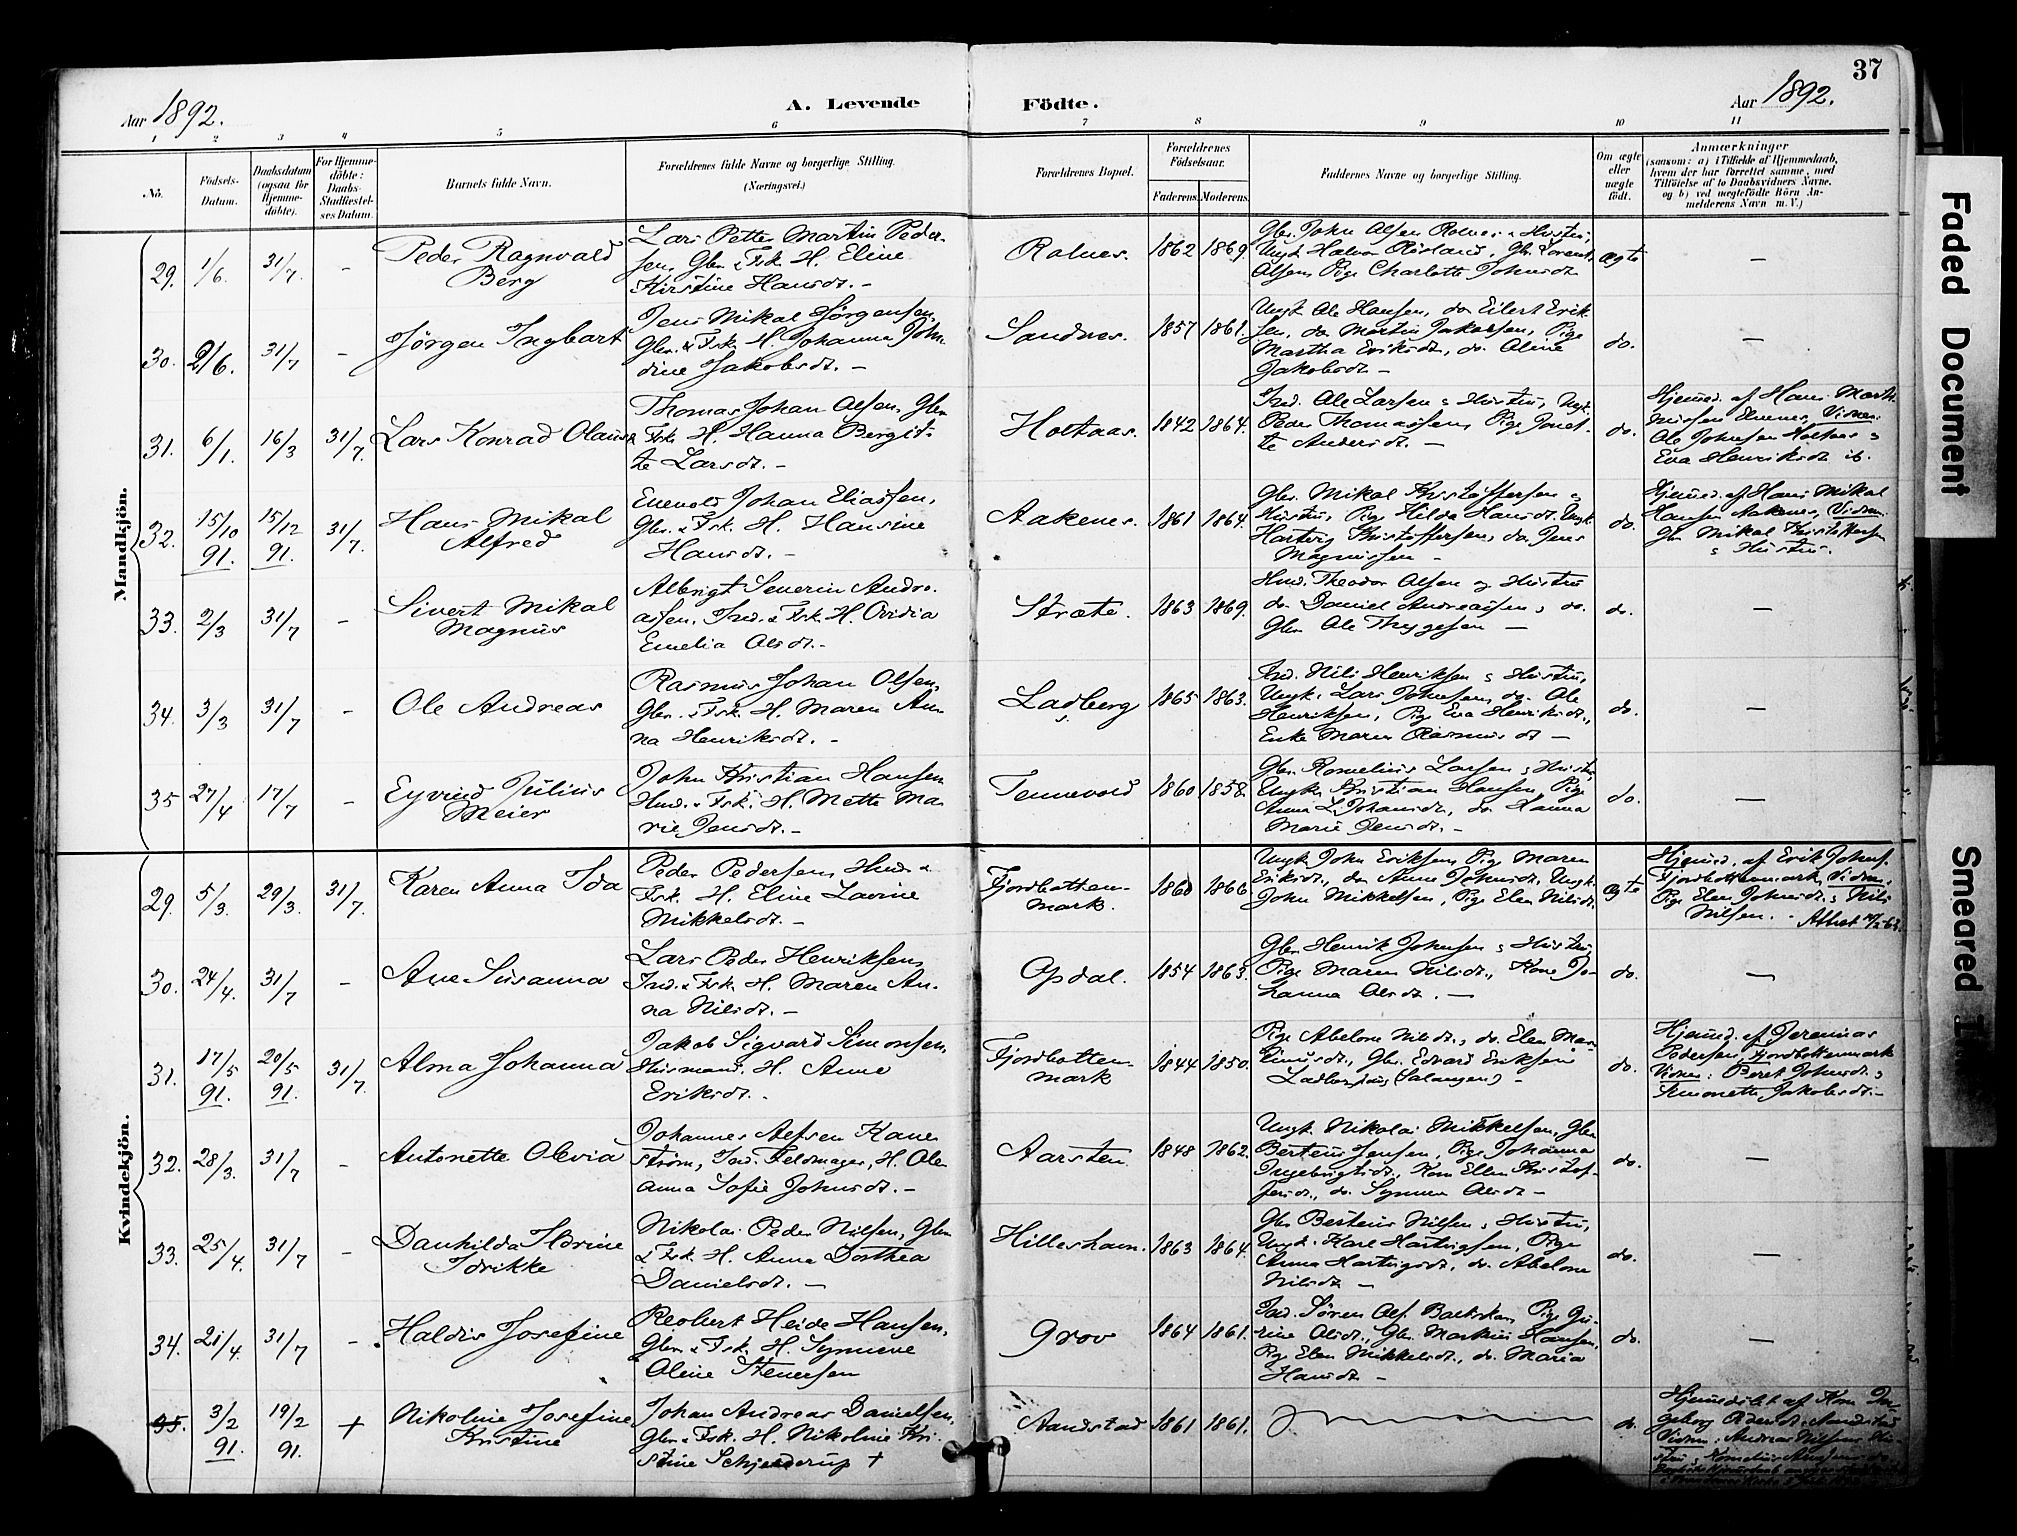 37
Aar 1892.
A. Levende
Födte.
Aar 1892.
1 2 3 4 5 6 7 8 9 10 11
No.
Födsels-
Datum.
Daabsdatum
(ogsaa for
Hjemme-
döbte).
For Hjemme-
döbte:
Daabs-
Stadfæstel-
ses Datum.
Barnets fulde Navn.
Forældrenes fulde Navne og borgerlige Stilling.
(Næringsvei.)
Forældrenes Bopæl.
Forældrenes
Födselsaar.
Faderens. Moderens.
Faddernes Navne og borgerlige Stilling.
Om ægte
eller
uægte
født.
Anmærkninger
(saasom: a) i Tilfælde af Hjemmedaab,
hvem der har forrettet samme, med
Tilföielse af to Daabsvidners Navne,
og b) ved uægtefödte Börn An-
melderens Navn m. V.)
Mandkjön.
29. 1/6. 31/7. -
Peder Ragnvald
Berg
Lars Petter Martin Peder-
sen, Gbr. & Fsk. H. Eline
Kirstine Hansdt. -
Rolnes. 1862 1869.
Gbr. John Olsen Rolnes & Hustru,
Ungk. Halvor
Olsen, Pige Charlotte Johnsdt.
ægte
-
30. 2/6. 31/7 -
Jörgen Ingbart
Jens Mikal Jörgensen,
Gbr. & Fsk. H. Johanna John
dine Jakobsdt. -
Sandnes. 1857 1861.
Ungk. Ole Hansen, do Eilert Erik
sen, do Martin Jakobsen, Pige
Martha Eriksdt., do. Oline
Jakobsdt -
do.
-
31. 6/1. 16/3 31/7.
Lars Konrad Olaus
Thomas Johan Olsen, Gbr.
& Fsk. H. Hanna Bergit-
te Larsdt. -
Holtaas. 1842 1864.
Ind. Ole Larsen & Hustru, Ungk.
Peder Thomassen, Pige Jonet-
te Andersdt. -
do.
Hjemmed. af Hans Mart.
Nilssen Elvenes, Vidner:
Ole Johnsen Holtaas &
Eva Henriksdt ib.
32. 15/10 91. 15/12 91. 31/7.
Hans Mikal
Alfred
Enevold Johan Eliassen,
Gbr. & Fsk. H. Hansine
Hansdt. -
Aakenes. 1861 1864.
Gbr. Mikal Kristoffersen &
Hustru, Pige Hilda Hansdt. Ungk.
Hartvig Kristoffersen, do Jens
Magnussen -
do.
Hjemmed. af Hans Mikal
Hansen Aakenes, Vidner:
Gbr Mikal Kristoffersen
& Hustru.
33. 2/3 31/7 -
Sivert Mikal
Magnus
Albrigt Severin Andre-
assen, Ind. & Fsk. H. Ovidia
Emelia Olsdt. -
Stræte. 1863 1869.
Husm. Theodor Olsen og Hustru
do Daniel Andreassen & do.
Gbr Ole Thygesen -
do.
-
34. 3/3 31/7 -
Ole Andreas
Rasmus Johan Olsen,
Gbr. & Fsk. H. Maren An-
na Henriksdt. -
Ladberg 1865 1863.
Ind. Nils Henriksen & Hustru,
Ungk. Lars Johnsen, do. Ole
Henriksen, Pige Eva Henriksdt.,
Enke Maren Rasmusdt -
do.
-
35 27/4 17/7 -
Eyvind Julius
Meier
John Kristian Hansen
Husm. & Fsk. H. Mette Ma-
rie Jensdt. -
Tennevold 1860 1858.
Gbr. Kornelius Larsen & Hustru,
Ungk. Kristian Hansen, Pige
Anna L. Johansdt., do. Hanna
Marie Jensdt. -
do.
-
Kvindekjön.
29. 5/3. 29/3. 31/7.
Karen Anna Ida
Peder Pedersen, Husm. &
Fsk. H. Eline Lavine
Mikkelsdt. -
Fjordbotten-
mark. 1860 1866
Ungk John Eriksen, Pige Maren
Eriksdt., do Anne Johnsdt. Ungk.
John Mikkelsen, Pige Elen Nilsdt.
ægte
Hjemmed. af Erik Johns.
Fjordbottenmark, Vidner:
Pige Elen Johnsdt. & Nils
Nilsen. -
30. 24/4. 31/7 -
Ane Susanna
Lars Peder Henriksen,
Ind. & Fsk. H. Maren An-
na Nilsdt. -
Opdal. 1854 1863.
Gbr Henrik Johnsen & Hustru,
Pige Maren Nilsdt., Kone Jo-
hanna Olsdt. -
do.
-
31. 17/5 91. 20/5 91. 31/7.
Alma Johanna
Jakob Sigvard Simonsen,
Husmand. H. Anne
Eriksdt. -
Fjordbotten-
mark 1844 1850.
Pige Abelone Nilsdt., do. Elen Mar-
tinusdt., Gbr. Edvard Eriksen
Ladberg (Salangen) -
do.
Hjemmed. af Jeremias
Pedersen, Fjordbottenmark
Vidner: Beret Johnsdt. &
Simonette Jakobsdt. -
32. 28/3. 31/7 -
Antonette Olevia
Johannes Alfsen Kane-
ström, Ind. Feldmager, H. Ole-
anna Sofie Johnsdt. -
Aarsten 1848 1862.
Ungk. Nikolai Mikkelsen, Gbr
Berteus Jensen, Pige Johanna
Ingebrigtsdt., Kone Ellen Kristof-
fersdt., do. Synneva Olsdt -
do.
-
33. 25/4. 31/7 -
Danhilda Hdrine
Idrikke
Nikolai Peder Nilsen, Gbr
& Fsk. H. Anna Dorthea
Danielsdt. -
Hilleshavn. 1863 1864.
Gbr Berteus Nilsen & Hustru,
Ungk. Karl Hartvigsen, Pige
Anna Hartvigsdt., do. Abelone
Nilsdt -
do.
-
34. 21/4. 31/7 -
Haldis Josefine
Reobert Heide Hansen,
Gbr. & Fsk. H. Synneve
Oline Stenersen
Grov 1864 1861.
Ind. Sören Ols. Pige Gu-
rine Olsdt., Gbr. Markus Hansen,
Pige Elen Mikkelsdt., do. Maria
Hansdt -
do.
-
35. 3/2 91. 19/2 91. +
Nikoline Josefine
Kristine
Johan Andreas Danielsen,
Gbr. & Fsk. H. Nikoline Kri-
stine Schjelderup +
Aandstad 1861 1861.
do.
Hjemmedöbt af Kone In-
geborg Pedersdt. Aandstad
Vidner: Andreas Nilsen & Hu-
stru &
Faded Document
Smeared